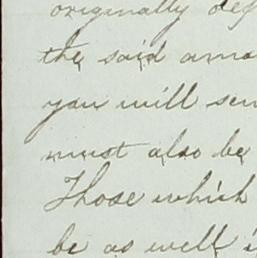 originally def
the said amo
you will sen
must also be
Those which
be as well i